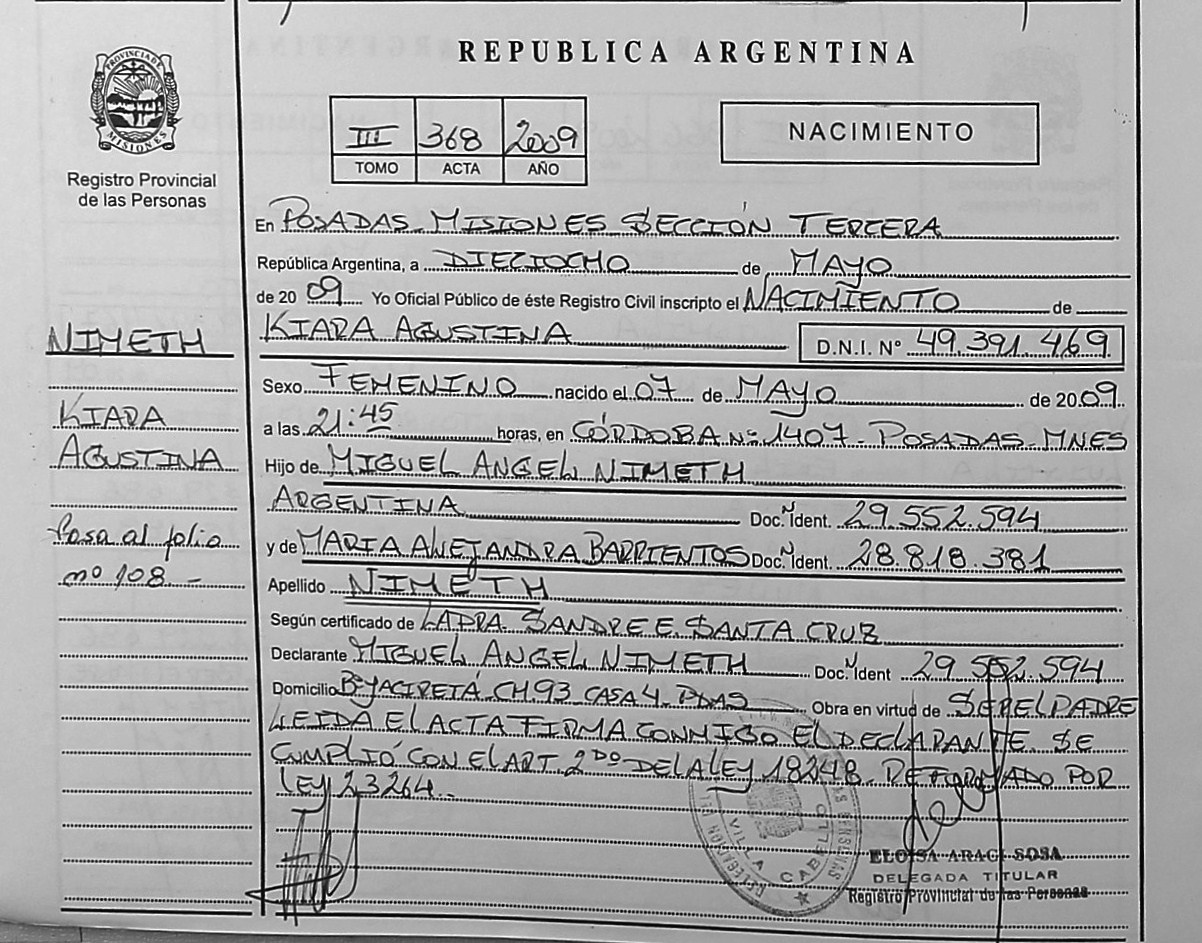 REPUBLICA ARGENTINA
PROVINCIA DE MISIONES
Registro Provincial
de las Personas
III 368 2009
TOMO ACTA AÑO
NACIMIENTO
En POSADAS MISIONES SECCIÓN TERCERA
República Argentina, a DIECIOCHO de MAYO
de 2009 Yo Oficial Público de éste Registro Civil inscripto el NACIMIENTO de
KIARA AGUSTINA D.N.I. N° 49.391.469
NIMETH
KIARA
AGUSTINA
Pasa al folio
nº 108.-
Sexo FEMENINO nacido el 07 de MAYO de 2009
a las 21:45 horas, en CÓRDOBA Nº 1407 - POSADAS - MNES
Hijo de MIGUEL ANGEL NIMETH
ARGENTINA Doc. Ident. 29.552.594
y de MARIA ALEJANDRA BARRIENTOS Doc. Ident. 28.818.381
Apellido NIMETH
Según certificado de SANTA CRUZ
Declarante MIGUEL ANGEL NIMETH Doc. Ident 29.552.594
Domicilio Bº YACIRETÁ CH 93 CASA 4 PDAS Obra en virtud de SER EL PADRE
LEIDA EL ACTA FIRMA CONMIGO EL DECLARANTE. SE
CUMPLIÓ CON EL ART. 2DO DE LA LEY 18248 REFORMADO POR
LEY 23264.
VILLA CABELLO
ELOISA ARACI SOSA
DELEGADA TITULAR
Registro Provincial de las Personas